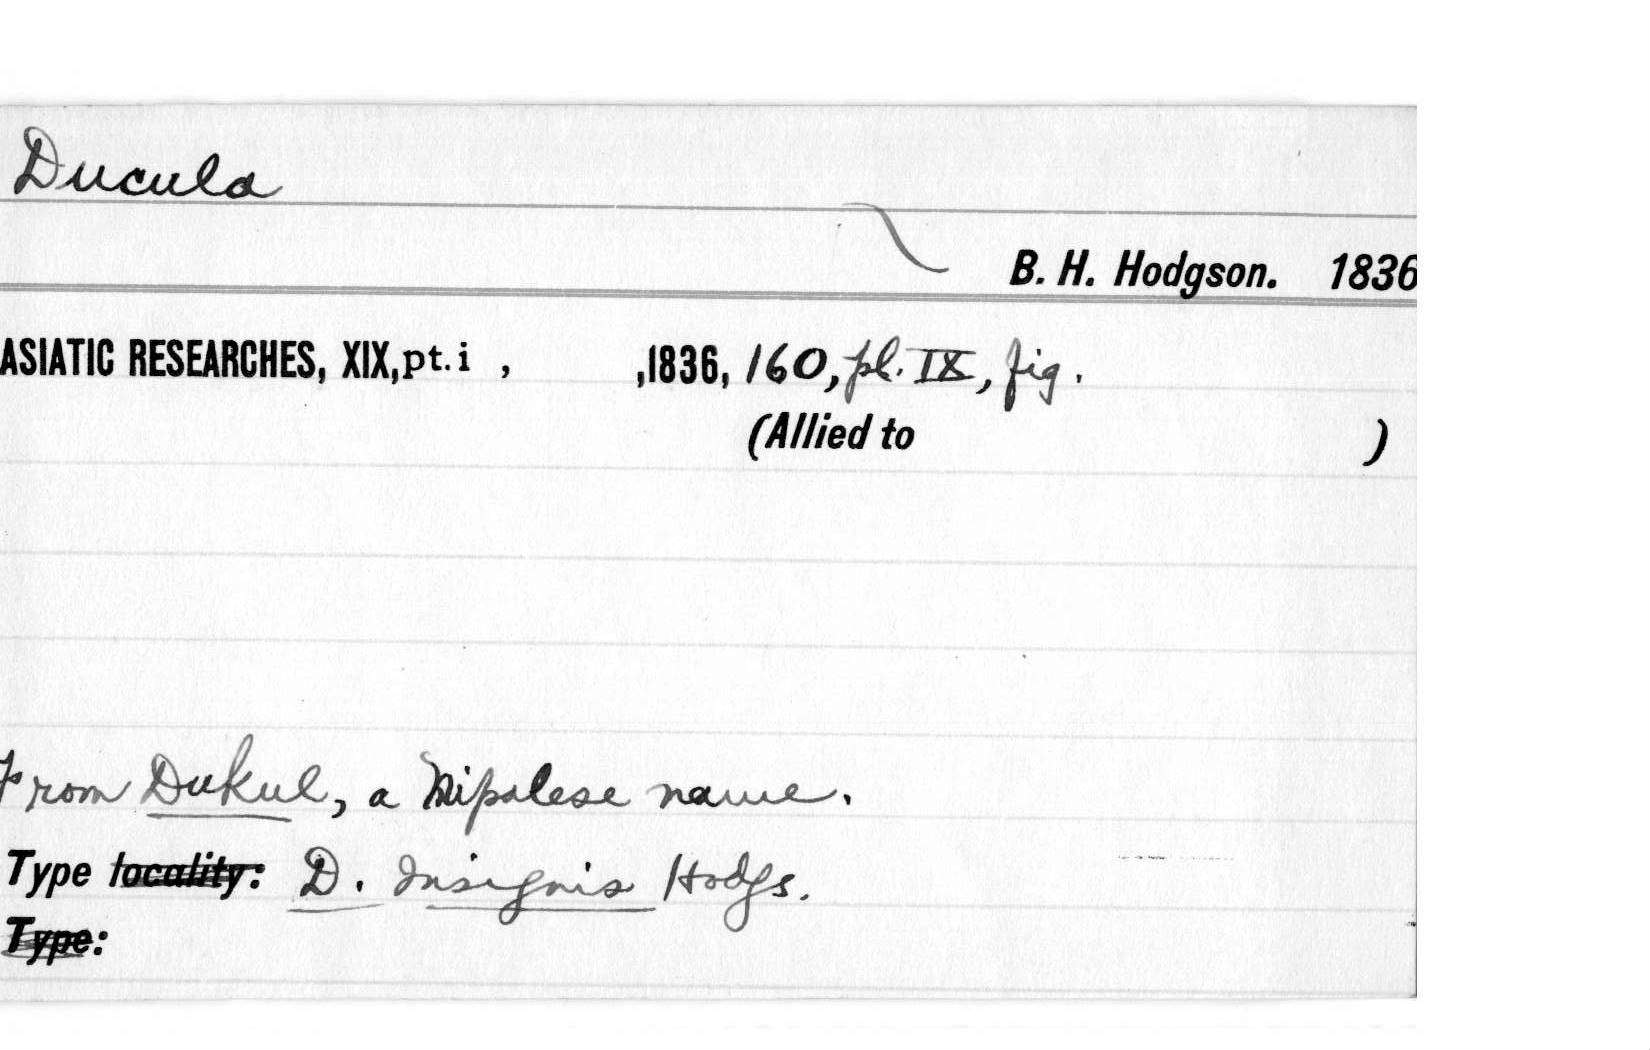 Ducula
B. H. Hodgson. 1836
ASIATIC RESEARCHES, XIX, pt. i , ,1836, 160, pl. IX, fig.
(Allied to )
From Dukul, a Nipalese name.
Type locality: D. Insignis Hodgs.
Type: